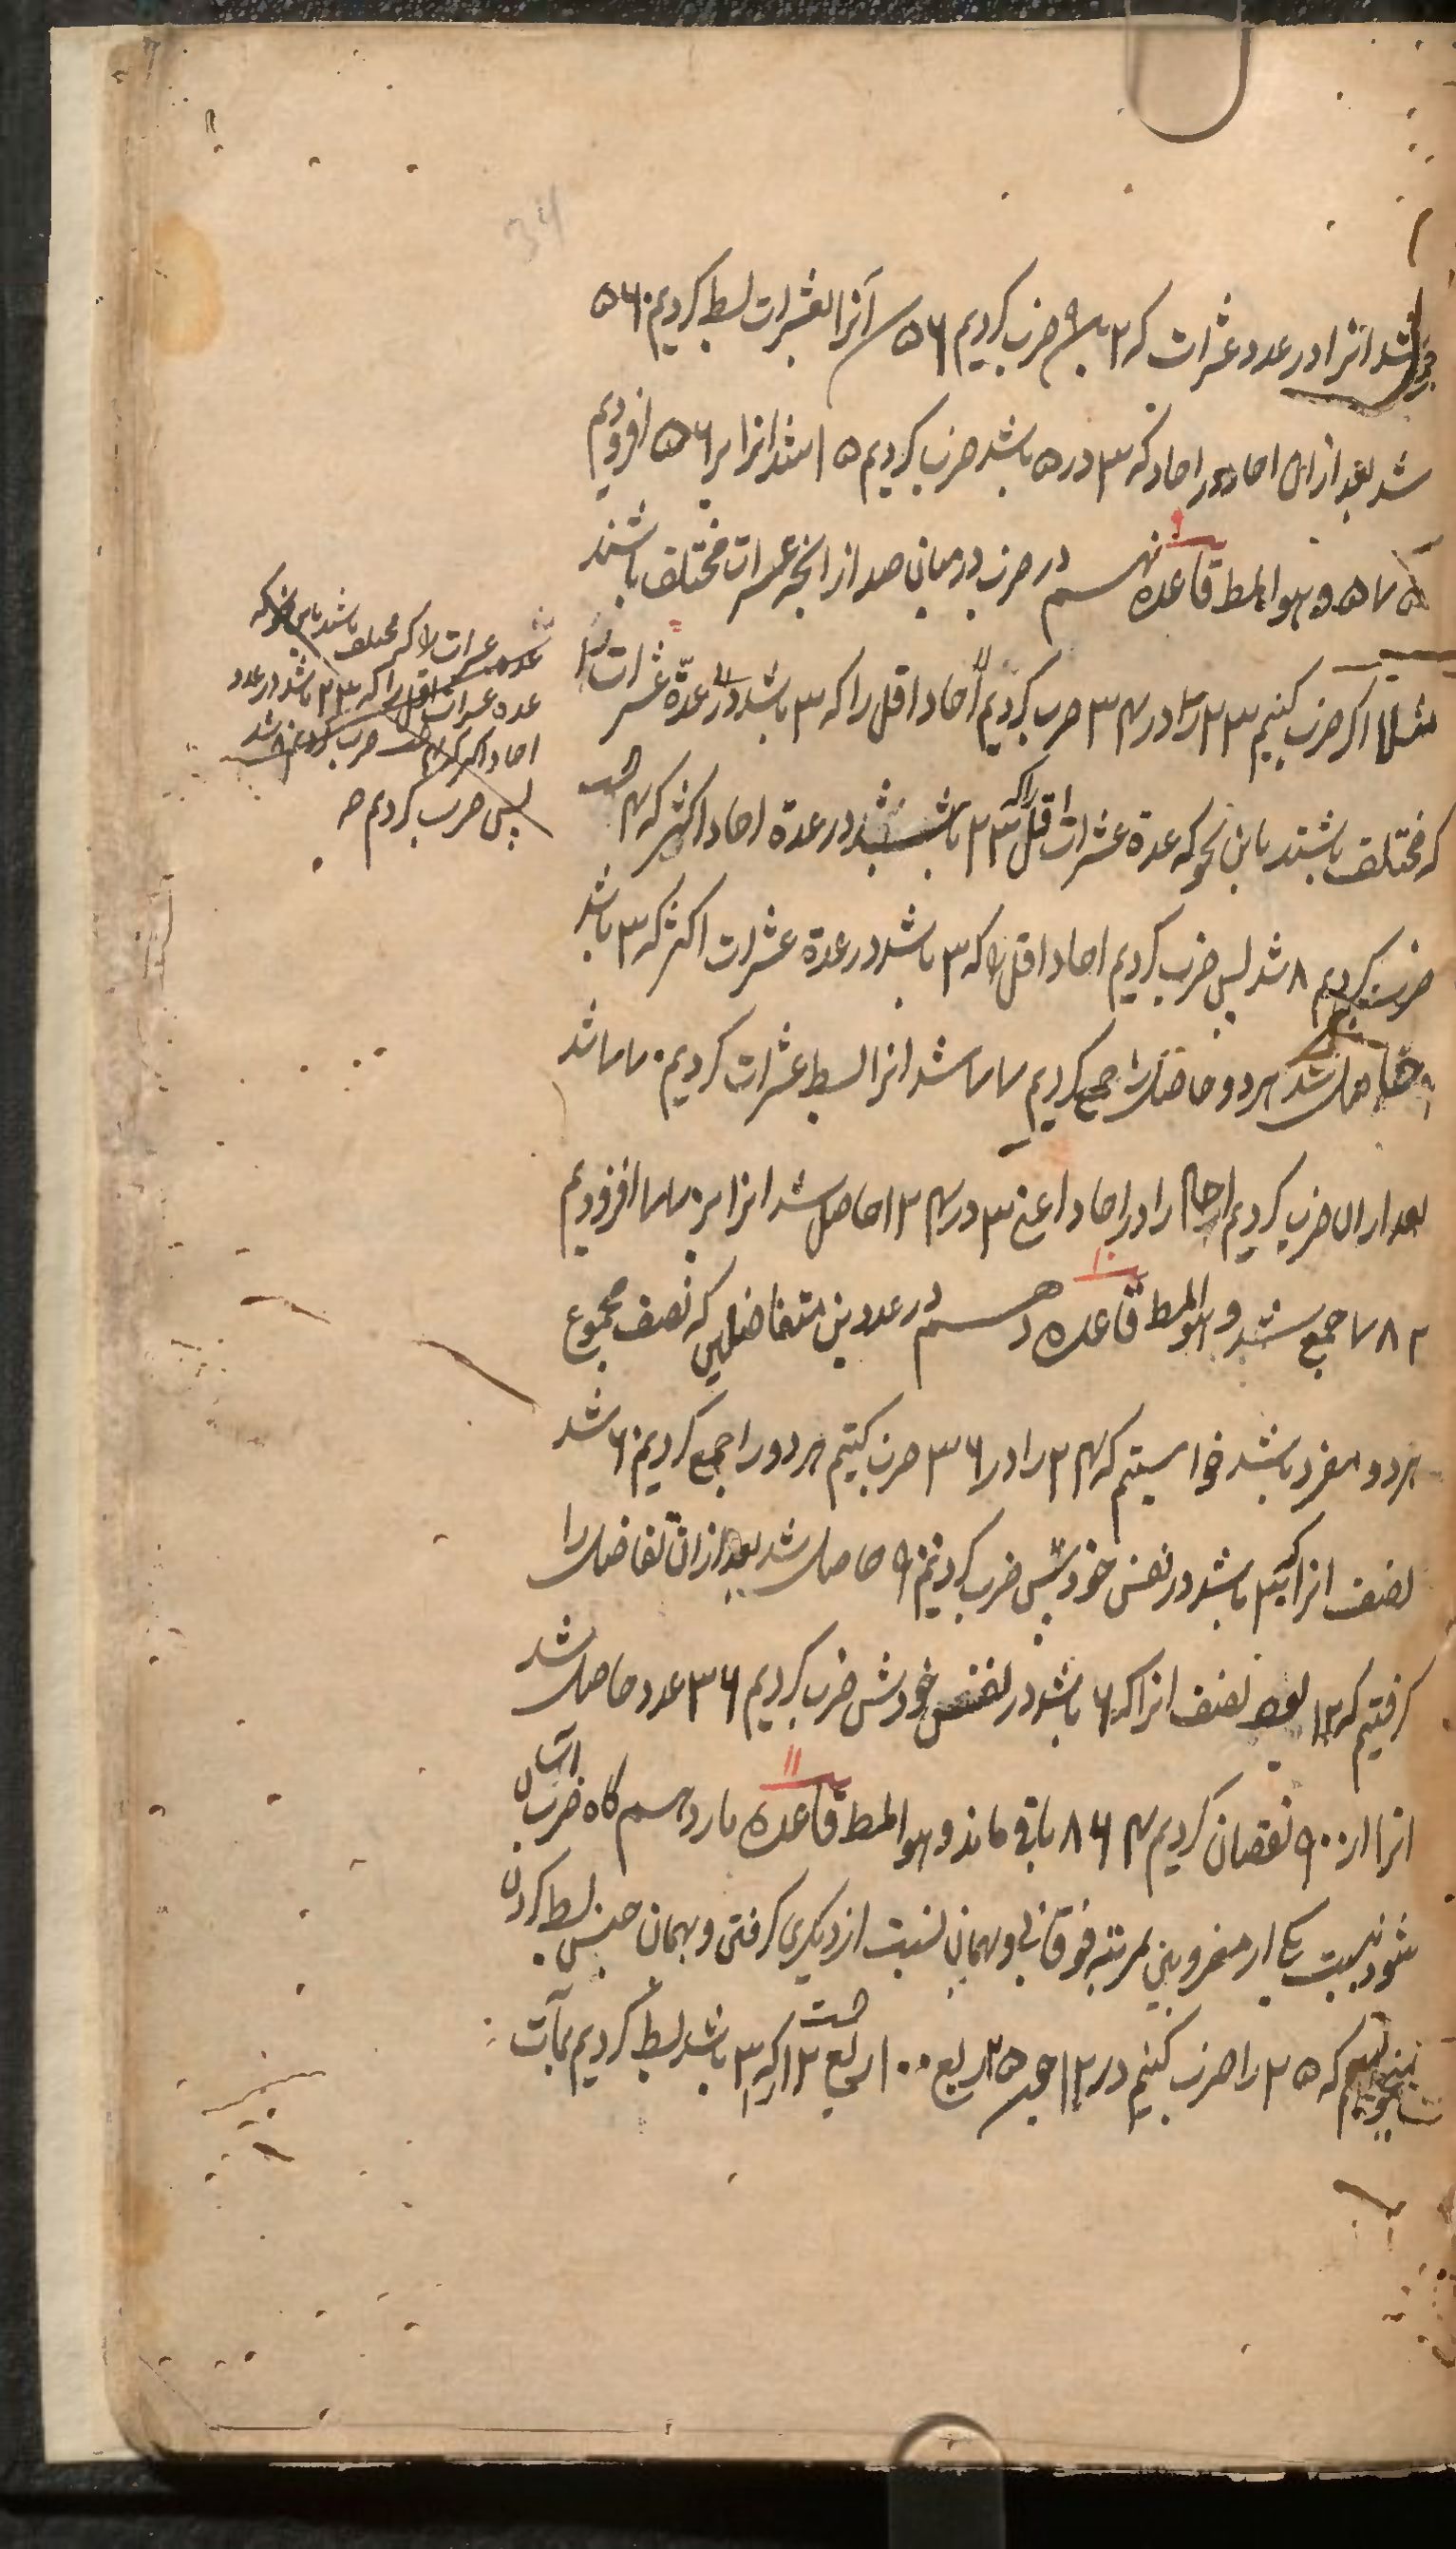 شد انرا در عدد عشرات که ۲ باشد ضرب کردیم ۵۶ آنرا بعشرات بسط کردیم ۵۶۰
شد بعد از ان احاد در احاد که ۳ در ۵ باشد ضرب کردیم ۱۵ شد انرا بر ۵۶۰ افزودیم
۵۷۵ وهو المط قاعده نهم در ضرب در میان صد از انچه عشرات مختلف باشند
مثلا اگر ضرب کنیم ۲۳ را در ۳۴ ضرب کردیم احاد اقل را که ۳ باشد در عدّة عشرات
که مختلف باشند باین نحو که عدة عشرات اقل را که ۲ باشد در عدة احاد اکثر که ۴ است
ضرب کردیم ۸ شد پس ضرب کردیم احاد اقل را که ۳ باشد در عدة عشرات اکثر که ۳ باشد
۹ حاصل شد هر دو حاصل را جمع کردیم ۷۷ شد انرا بسط عشرات کردیم ۷۷۰ شد
بعد از ان ضرب کردیم احاد را در احاد اعنی ۳ در ۴ ۱۲ حاصل شد انرا بر ۷۷۰ افزودیم
۷۸۲ جمع شد وهو المط قاعده دهم در عددین متفاضلین که نصف مجموع
هر دو مفرد باشد خواستیم که ۲۴ را در ۳۶ ضرب کنیم هر دو را جمع کردیم ۶۰ شد
نصف انرا که ۳۰ باشد در نفس خودش ضرب کردیم ۹۰۰ حاصل شد بعد از ان تفاضل را
گرفتیم که ۱۲ بود نصف انرا که ۶ باشد در نفس خودش ضرب کردیم ۳۶ عدد حاصل شد
انرا از ۹۰۰ نقصان کردیم ۸۶۴ باقی ماند وهو المط قاعده یازدهم گاه ضرب آسان
شود نسبت یکی از مضروبین بمرتبه فوقانی وبهمان نسبت از دیگری گرفتن وبهمان جنس بسط کردن
میخواهیم که ۲۵ را ضرب کنیم در ۱۲ چون ۲۵ ربع ۱۰۰ است ربع ۱۲ را که ۳ باشد بسط کردیم بمآت
عده عشرات را که مختلف باشند باین نحو که
عده عشرات اقل را که ۲ باشد در عدد
احاد اکثر که ۴ است ضرب کردیم ۸ شد
پس ضرب کردیم صه
۹
۱۰
۱۱
34